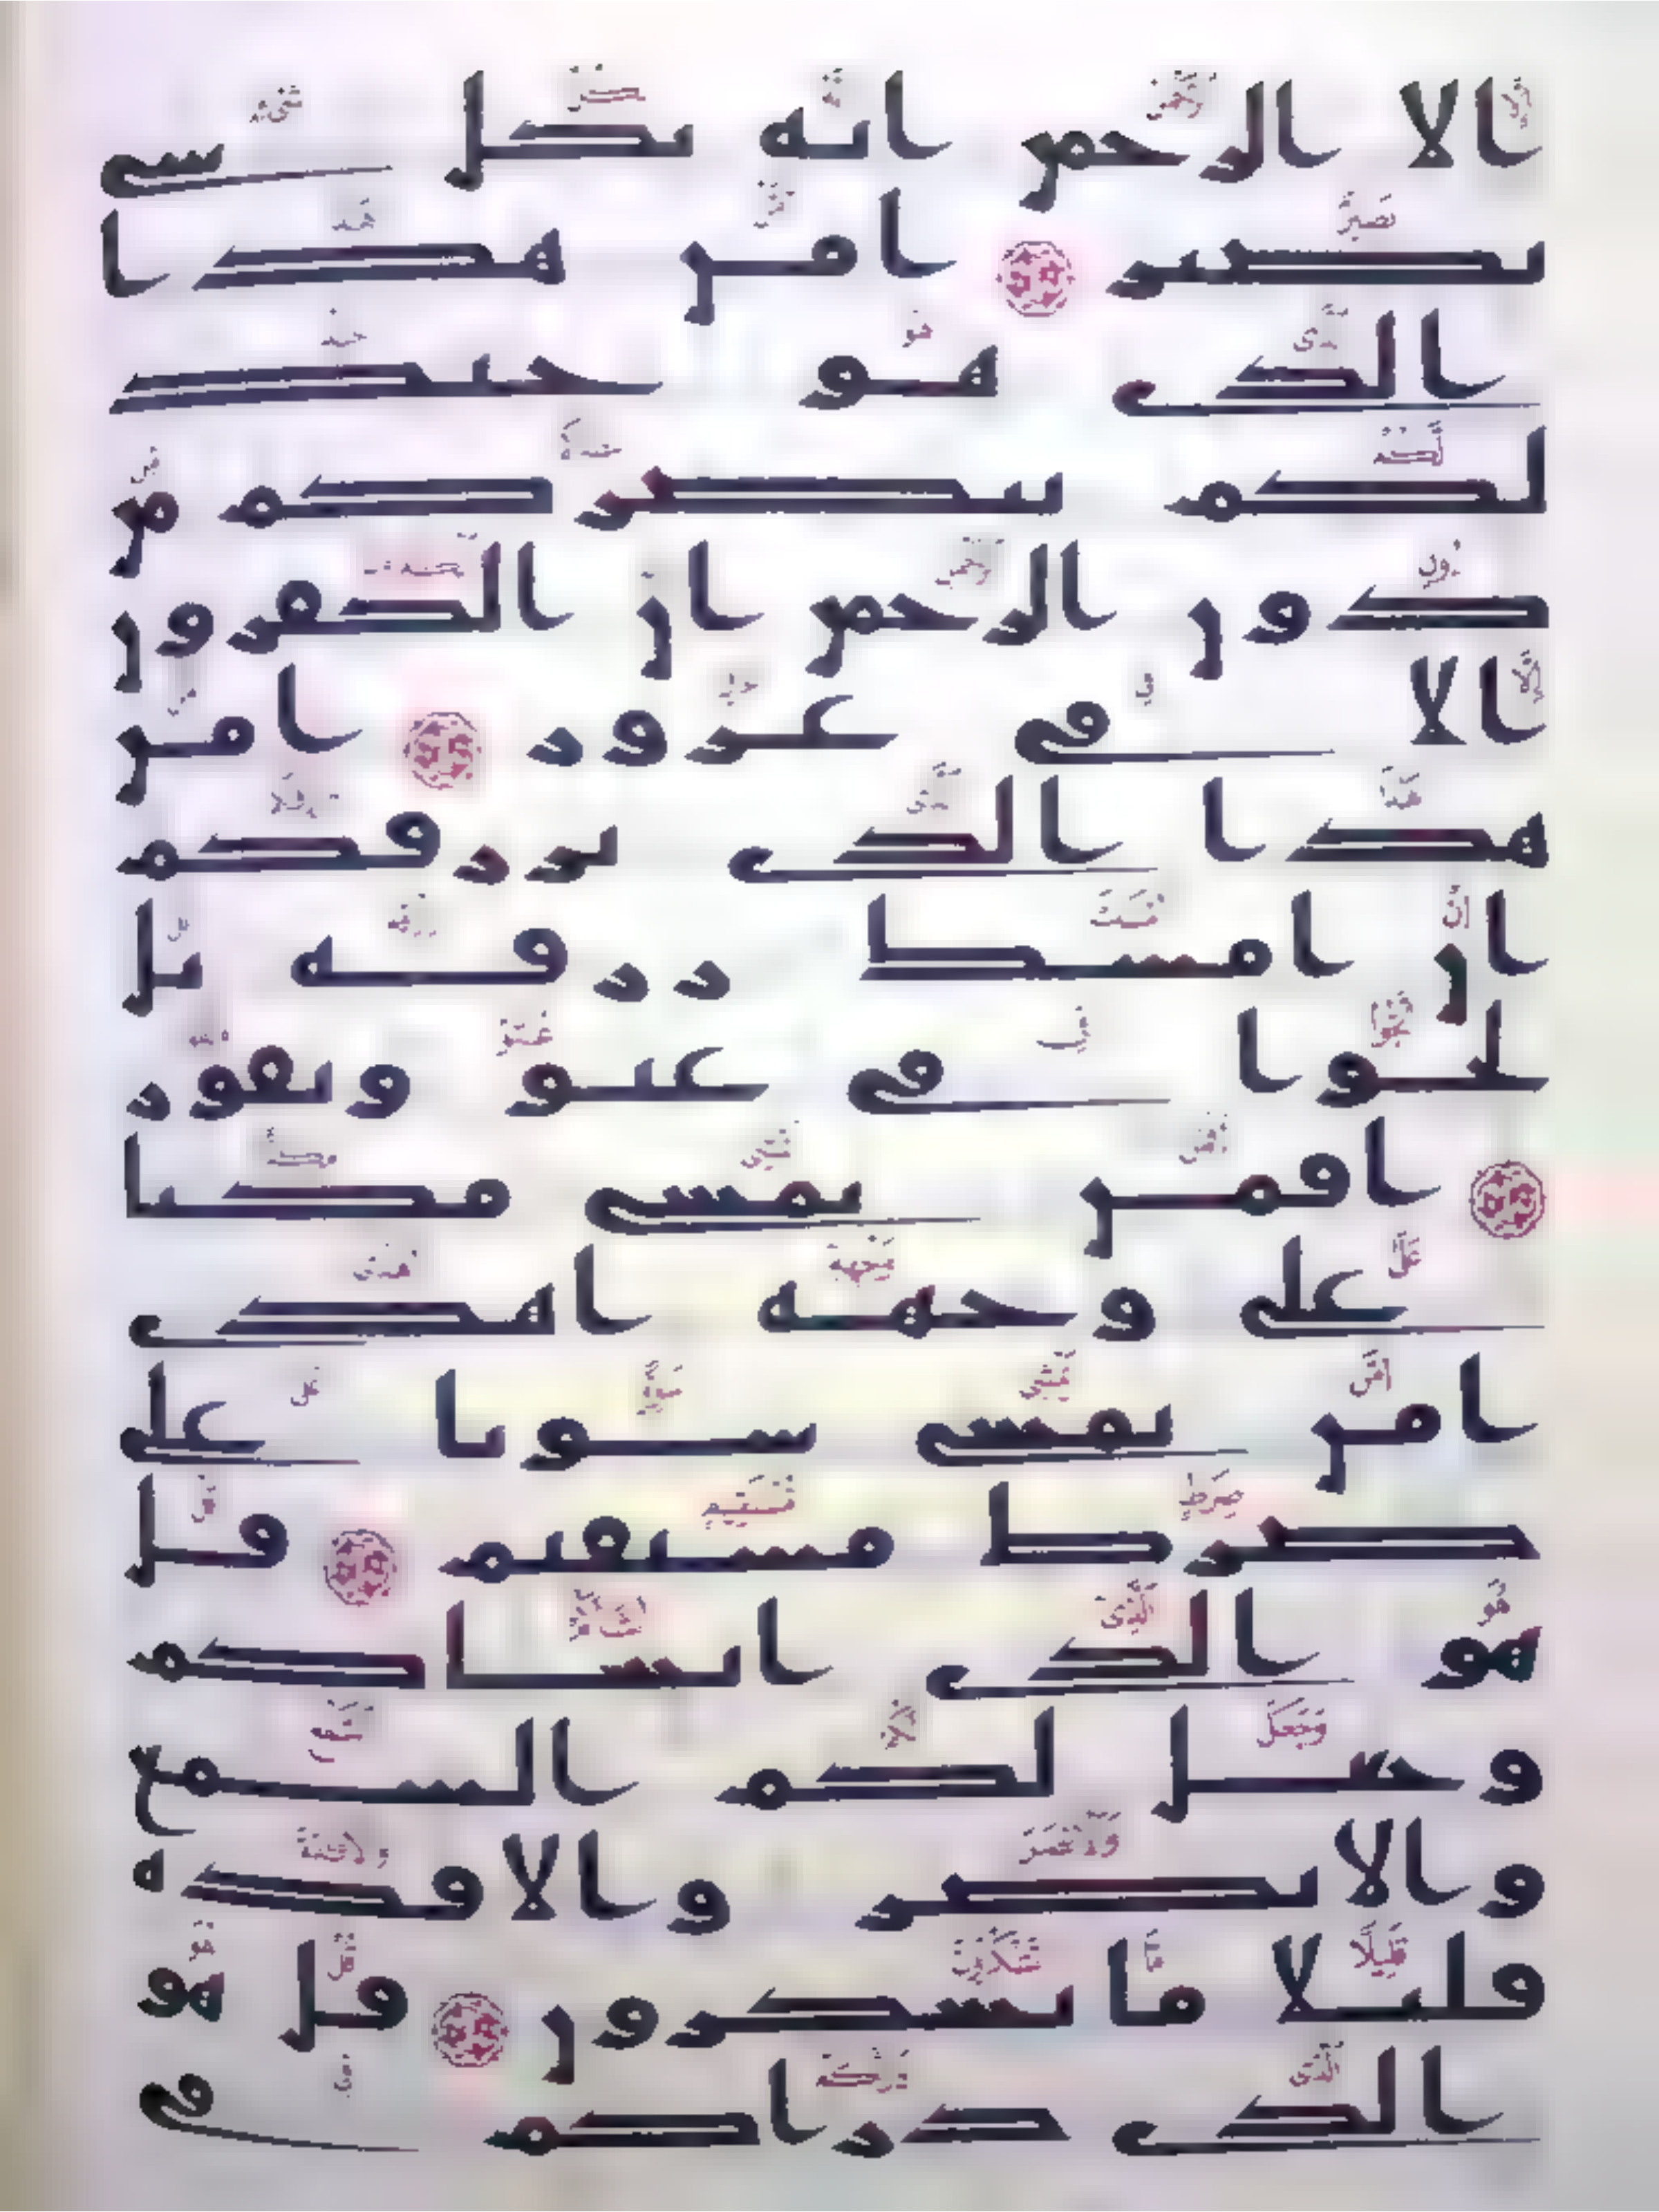 الا الرحمن انه بكل شى
بصير امن هذا
الذى هو جند
لكم ينصركم من
دون الرحمن ان الكفرون
الا فى غرور امن
هذا الذى يرزقكم
ان امسك رزقه بل
لجوا فى عتو ونفور
افمن يمشى مكبا
على وجهه اهدى
امن يمشى سويا على
صرط مستقيم قل
هو الذى انشاكم
وجعل لكم السمع
والابصر والافده
قليلا ما تشكرون قل هو
الذى ذراكم فى